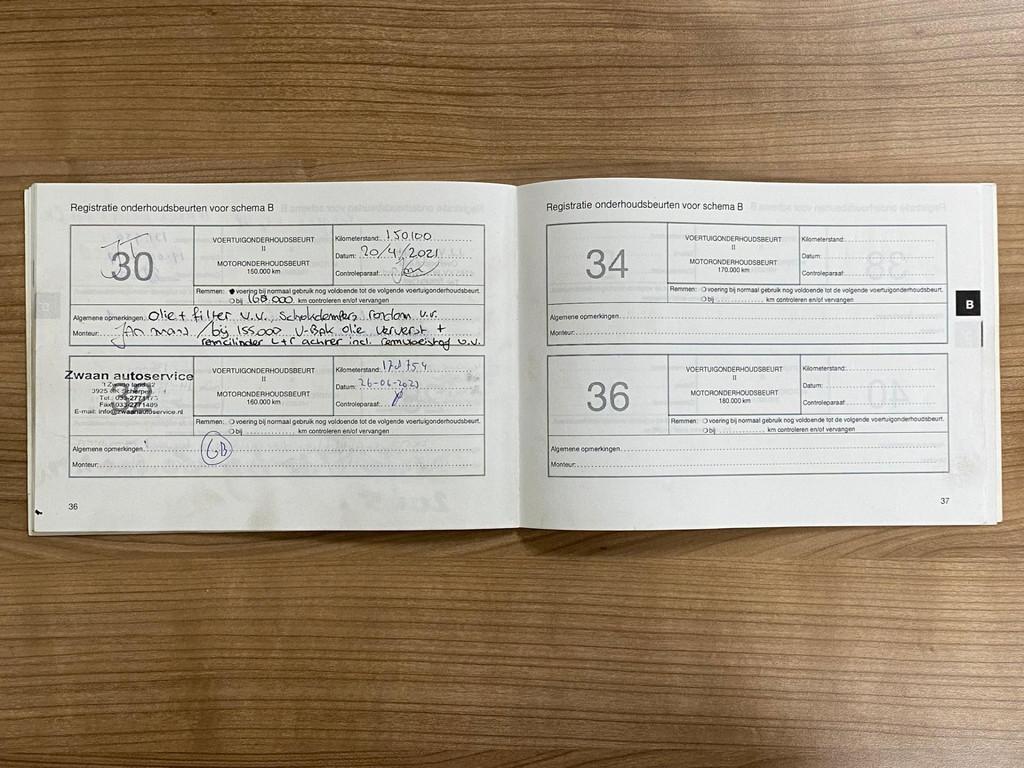 Registratie onderhoudsbeurten voor schema B
30
VOERTUIGONDERHOUDSBEURT
II
MOTORONDERHOUDSBEURT
150.000 km
Kilometerstand: 150100
Datum: 20/4/2021
Controleparaaf:
Remmen: voering bij normaal gebruik nog voldoende tot de volgende voertuigonderhoudsbeurt.
bij 160.000 km controleren en/of vervangen
Algemene opmerkingen: olie + filter v.v. Schokdempers rondom v.v.
Monteur: Jan mans / bij 155.000 V-Bak olie ververst +
remcilinder L+r achter incl. remvloeistof v.v.
Zwaan autoservice
3925
Tel.: 033-2771173
Fax: 033-2771409
E-mail: info@zwaanautoservice.nl
VOERTUIGONDERHOUDSBEURT
II
MOTORONDERHOUDSBEURT
160.000 km
Kilometerstand:
Datum: 26-06-2023
Controleparaaf:
Remmen: voering bij normaal gebruik nog voldoende tot de volgende voertuigonderhoudsbeurt.
bij km controleren en/of vervangen
Algemene opmerkingen:
GB
Monteur:
36
Registratie onderhoudsbeurten voor schema B
34
VOERTUIGONDERHOUDSBEURT
II
MOTORONDERHOUDSBEURT
170.000 km
Kilometerstand:
Datum:
Controleparaaf:
Remmen: voering bij normaal gebruik nog voldoende tot de volgende voertuigonderhoudsbeurt.
bij km controleren en/of vervangen
Algemene opmerkingen
Monteur:
B
36
VOERTUIGONDERHOUDSBEURT
II
MOTORONDERHOUDSBEURT
180.000 km
Kilometerstand:
Datum:
Controleparaaf:
Remmen: voering bij normaal gebruik nog voldoende tot de volgende voertuigonderhoudsbeurt.
bij km controleren en/of vervangen
Algemene opmerkingen
Monteur:
37